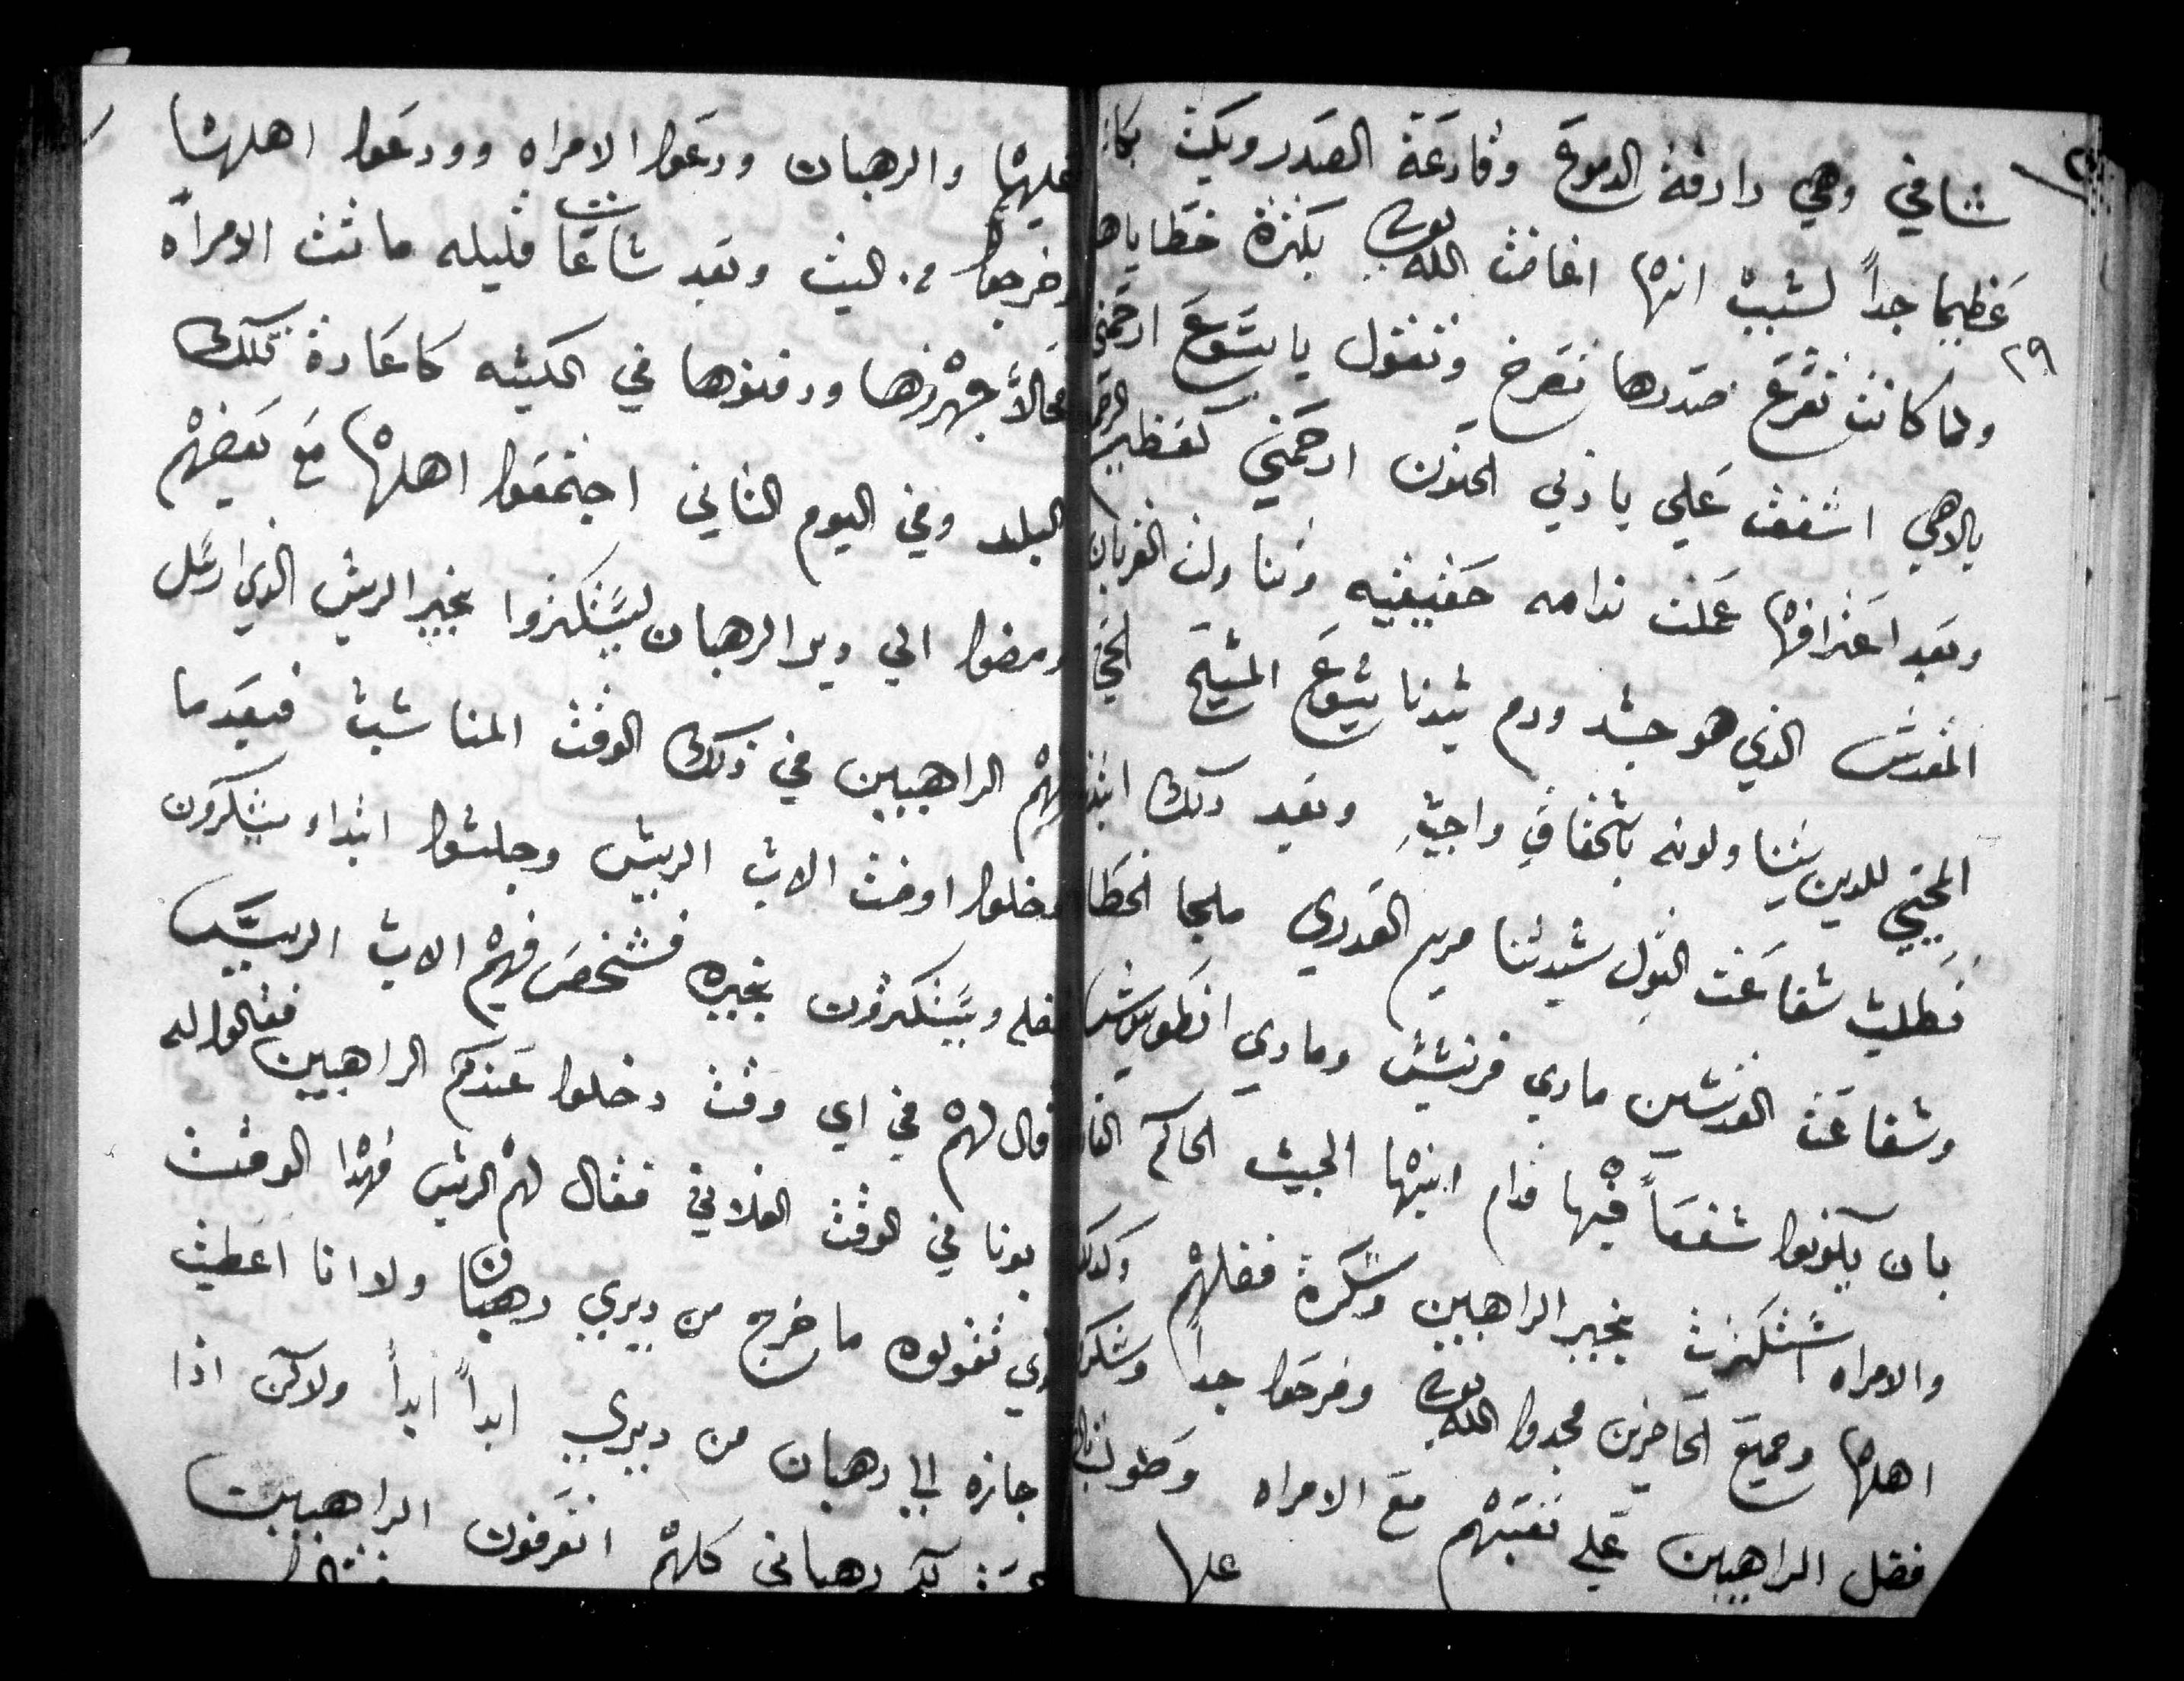 شافي وهي دارفة الدموع وقارعة الصدر وبكت بكاء
عظيما جداً لسبب انها اغاضت الله بكثرة خطاياها
٢٩
ولما كانت تقرع صدرها تصرخ وتقول يا يسوع ارحمني
يالاهي اشفق علي ياربي الحنون ارحمني كعظيم
وبعد اعترافها عملت ندامه حقيقيه وتناولت القربان
المقدس الذي هو جسد ودم سيدنا يسوع المسيح الحي
المحيي للدين يتناولونه باستحقاق واجب وبعد دلك
تطلب شفاعت البتول سيدتنا مريم العدري ملجا الخطا
وشفاعت القديسين ماري فرنسيس وماري انطونيوس
بان يكونوا شفعاً فيها قدام ابنها الحبيب الحاكم
والامراه استكثرت بخير الراهبين وشكرة فضلهم وكدلك
اهلها وجميع الحاضرين مجدوا الله وفرحوا جداً وشكروا
فضل الراهبين علي تعبهم مع الامراه
عليها
عليها والرهبان ودعوا الامراه وودعوا اهلها
وخرجوا من البيت وبعد ساعات قليله ماتت الامراه
حالاً جهزوها ودفنوها في الكنيسه كاعادة تلك
البلد وفي اليوم الثاني اجتمعوا اهلها مع بعضهم
ومضوا الي دير الرهبان ليستكثروا بخير الريس الذي ارسل
لهم الراهبين في ذلك الوقت المناسب فبعدما
دخلوا اوضت الاب الرييس وجلسوا ابتداو يشكرون
فضله ويستكثرون بخيره فشخص فيهم الاب الرييس
قال لهم في اي وقت دخلوا عندكم الراهبين فقالوا له
بونا في الوقت الفلاني فقال لهم الريس فهذا الوقت
الذي تقولوه ما خرج من ديري رهبان ولا انا اعطيت
جازه الي رهبان من ديري ابداً ابداً ولاكن اذا
رهباني كلهم اتعرفون الراهبين